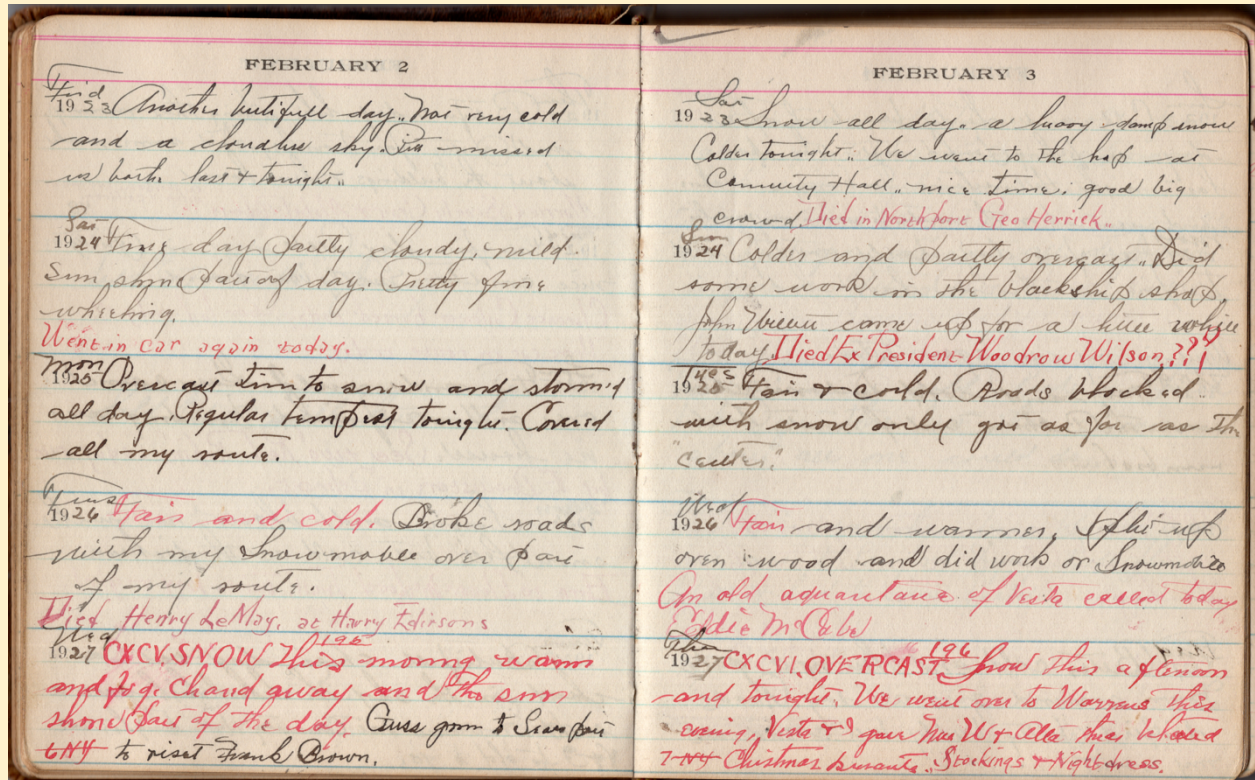 FEBRUARY 2
Frid
1923 Another butifull day.. Not very cold
and a cloudless sky. missed
us both last & tonight..
Sat
1924 Fine day partly cloudy, mild.
Sun shine part of day. Pretty fine
wheeling.
Went in car again today.
Mon
1925 Overcast to snow and stormed
all day. Regular tempest tonight. Covered
all my route.
Tues
1926 Fair and cold. Broke roads
with my Snowmobee over part
of my route.
Died Henry LeMay, at Harry Edirsons
Wed
196
1927 CXCV. SNOW This morning warm
and fog. away and the sun
shone part of the day. Guss gorn to Searsport
6 NY to viset Frank Brown.
FEBRUARY 3
Sat
1923 Snow all day.. a heavy damp snow
Colder tonight.. We went to the hop at
Comuity Hall.. nice time. good big
crowd. Died in Northport Geo Herrick..
Sun
1924 Colder and partly overcast.. Did
some work in the shop.
John came up for a little while
today. Died Ex President Woodrow Wilson???
Tues
1925 Fair & cold. Roads blocked..
with snow only got as far as the
"center."
Wed
1926 Fair and warmer. up
over wood and did work or Snowmobile
An old aquantance of Vesta called today
Eddie McCabe
Thu
196
1927 CXCVI. OVERCAST Snow this afternoon
and tonight. We went over to Warrens this
evening.. Vesta & I gave Mrs W & Alta their belated
7 NY Christmas.. Stockings & Nightdress.